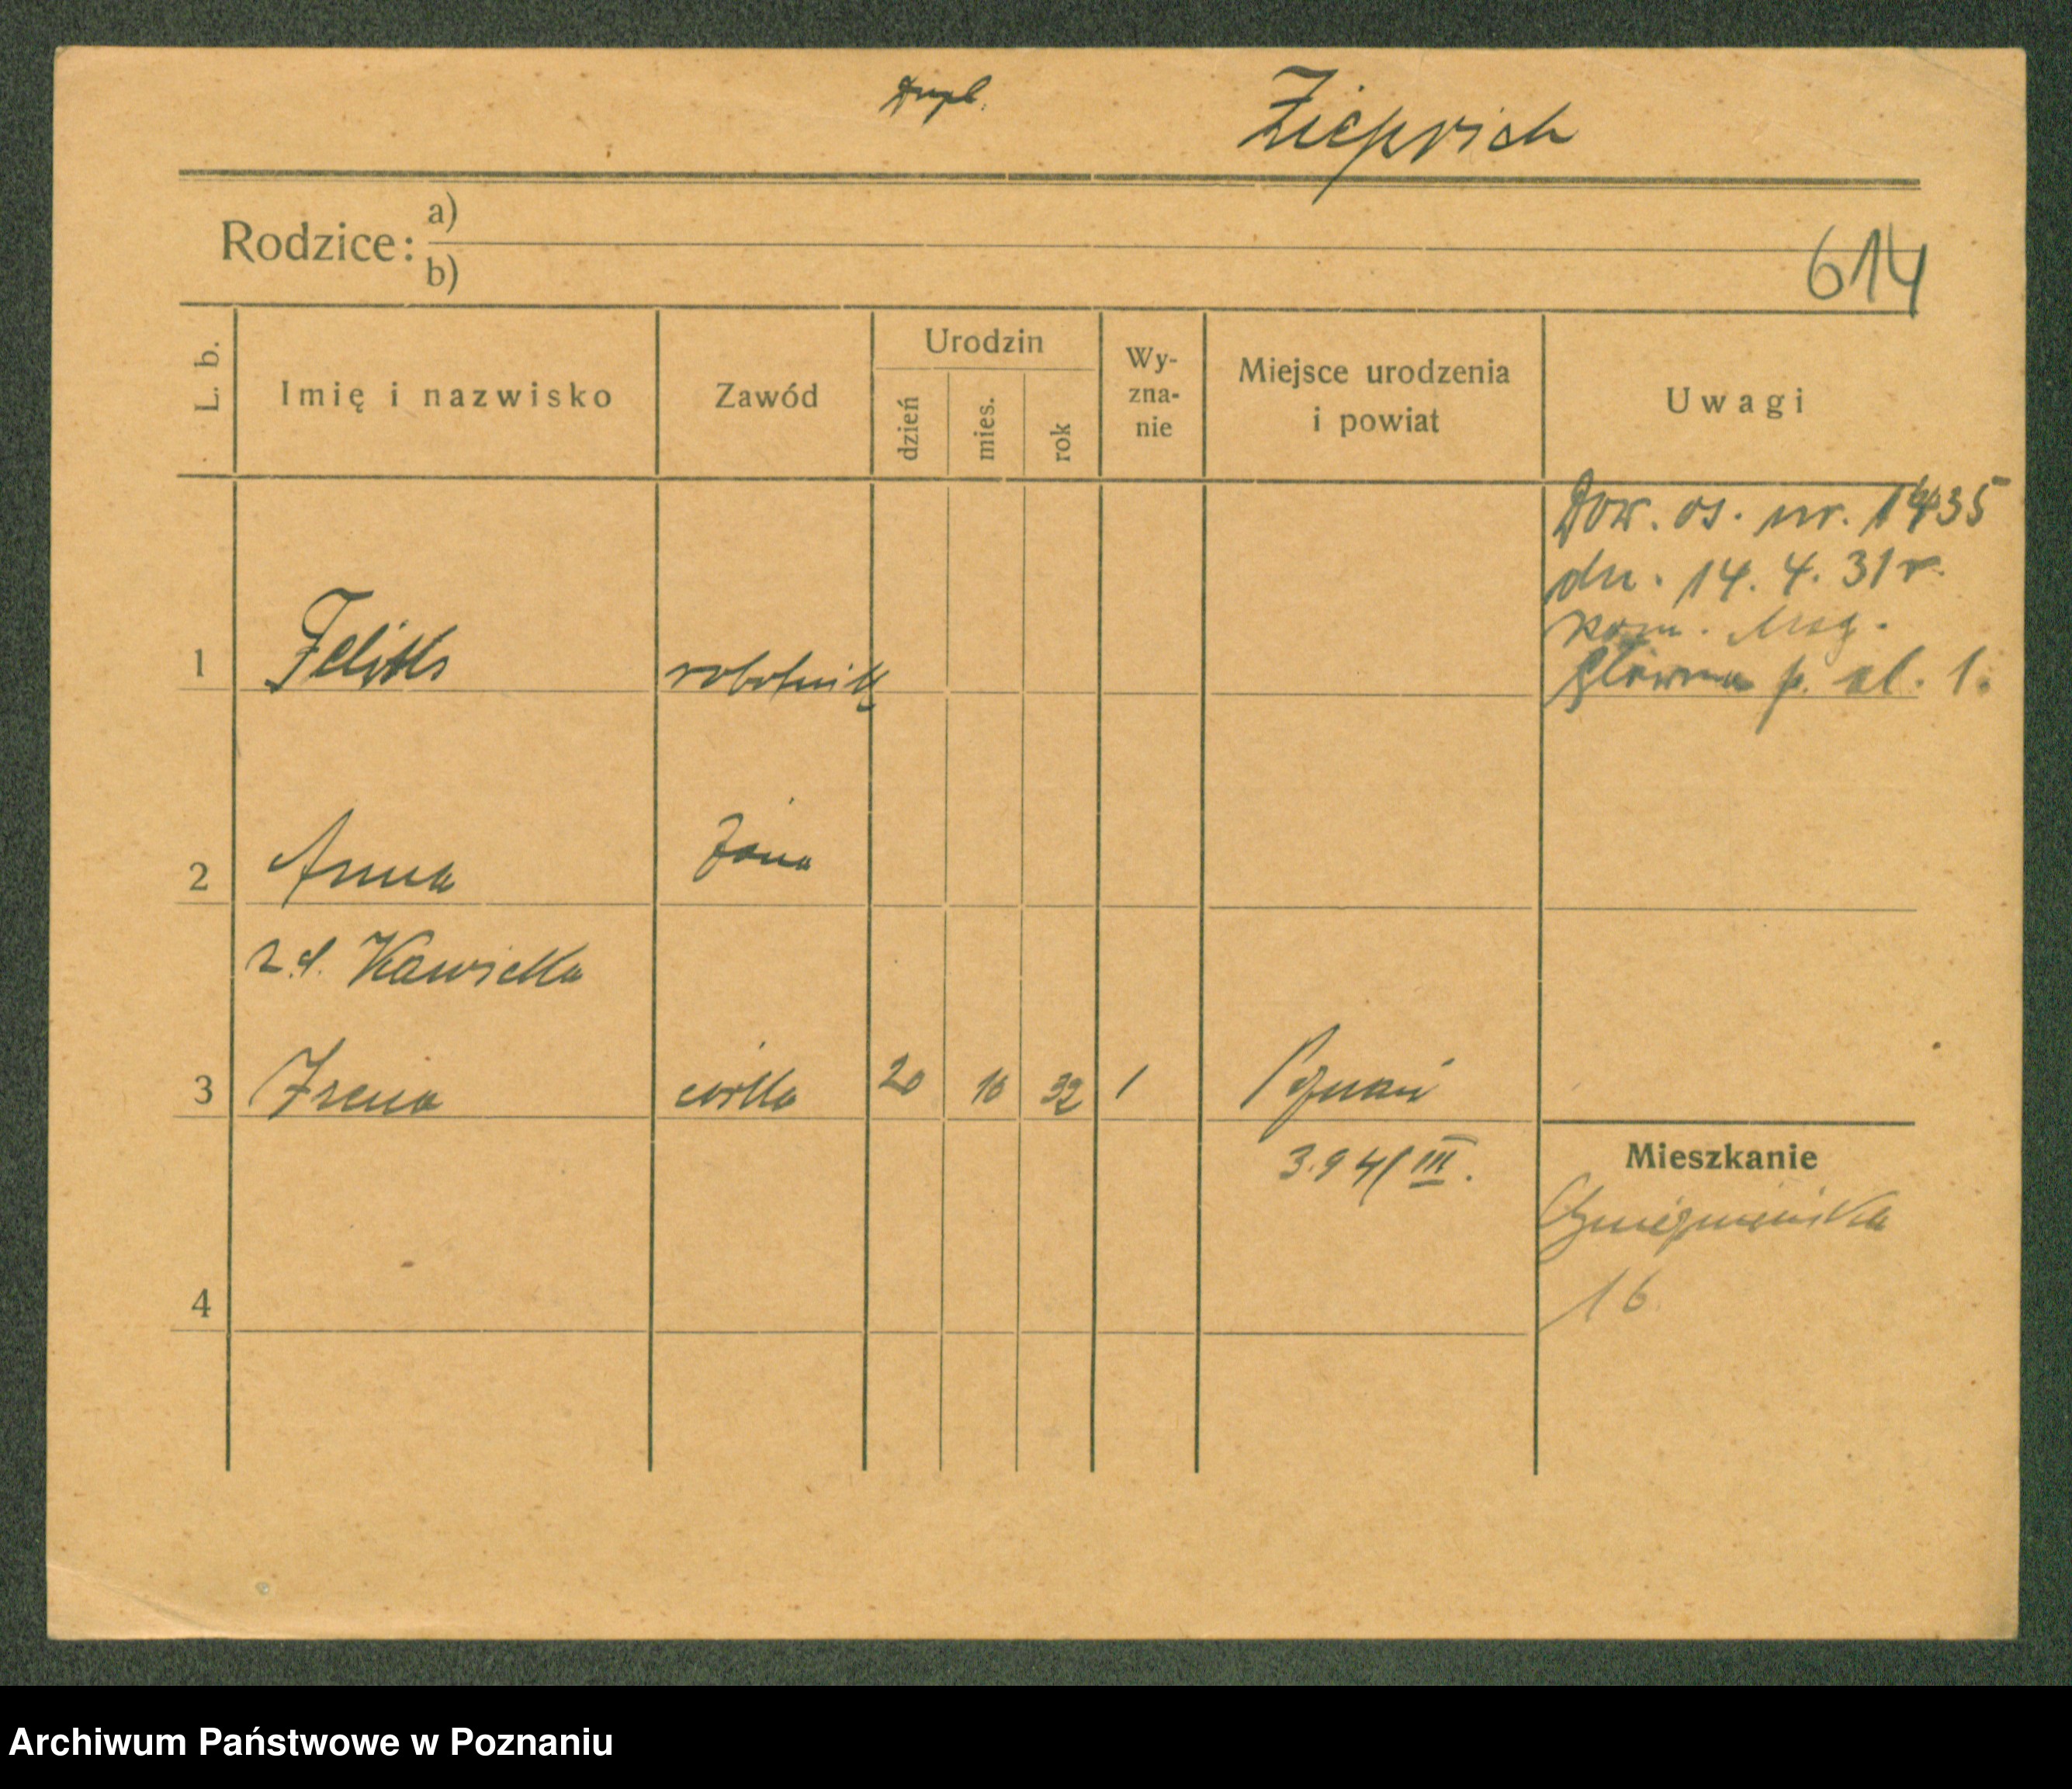 Dupl. Zieprich
Rodzice: a)
b)
614
L. b. Imię i nazwisko Zawód Urodzin dzień mies. rok Wy-zna-nie Miejsce urodzenia i powiat Uwagi
Dow. os. nr. 1435
dn. 14. 4. 31 r.
Mag.
Główna p. ol. 1.
1 Feliks robotnik
2 Anna żona
z d. Kawicka
3 Irena córka 20 10 32 1 Poznań
3.941 III.
Mieszkanie
Gnieźnieńska
16
4
Archiwum Państwowe w Poznaniu